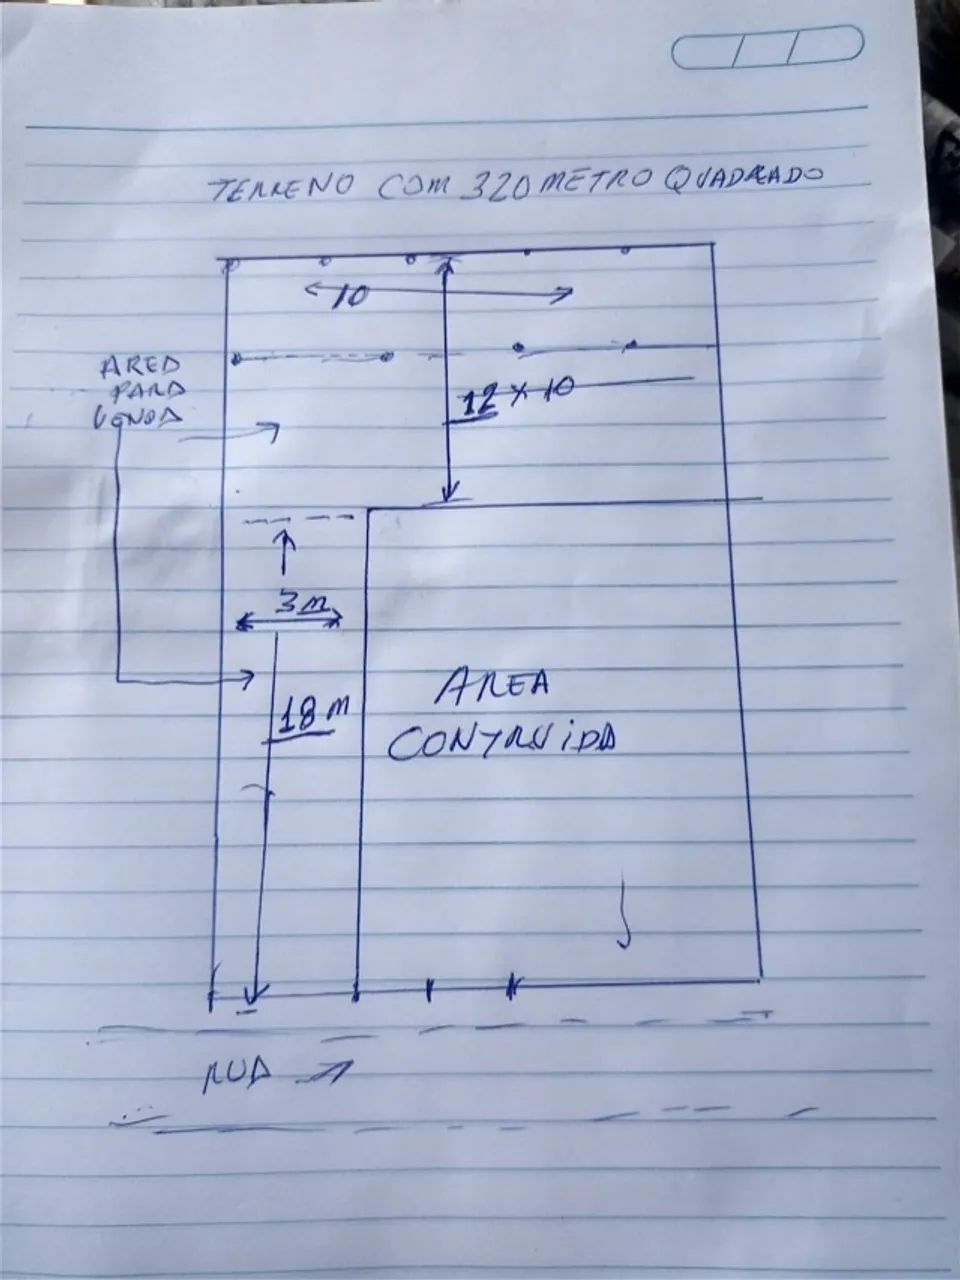 TERRENO COM 320 METRO QUADRADO
10
AREA
PARA
VENDA
12 x 10
3m
18m
AREA
CONTRUIDA
RUA